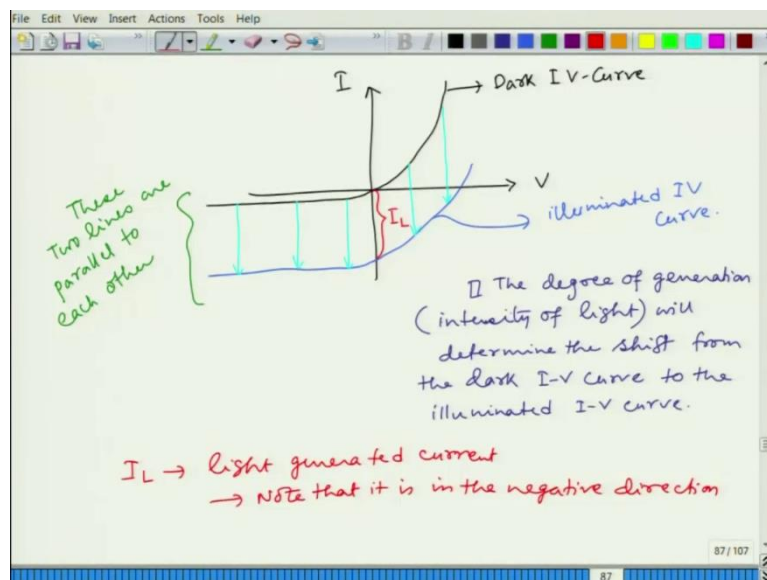 File Edit View Insert Actions Tools Help
B I
I
Dark IV-Curve
V
These
Two lines are
parallel to
each other
I_L
illuminated IV
curve.
The degree of generation
(intensity of light) will
determine the shift from
the dark I-V curve to the
illuminated I-V curve.
I_L → light generated current
→ Note that it is in the negative direction
87/107
87